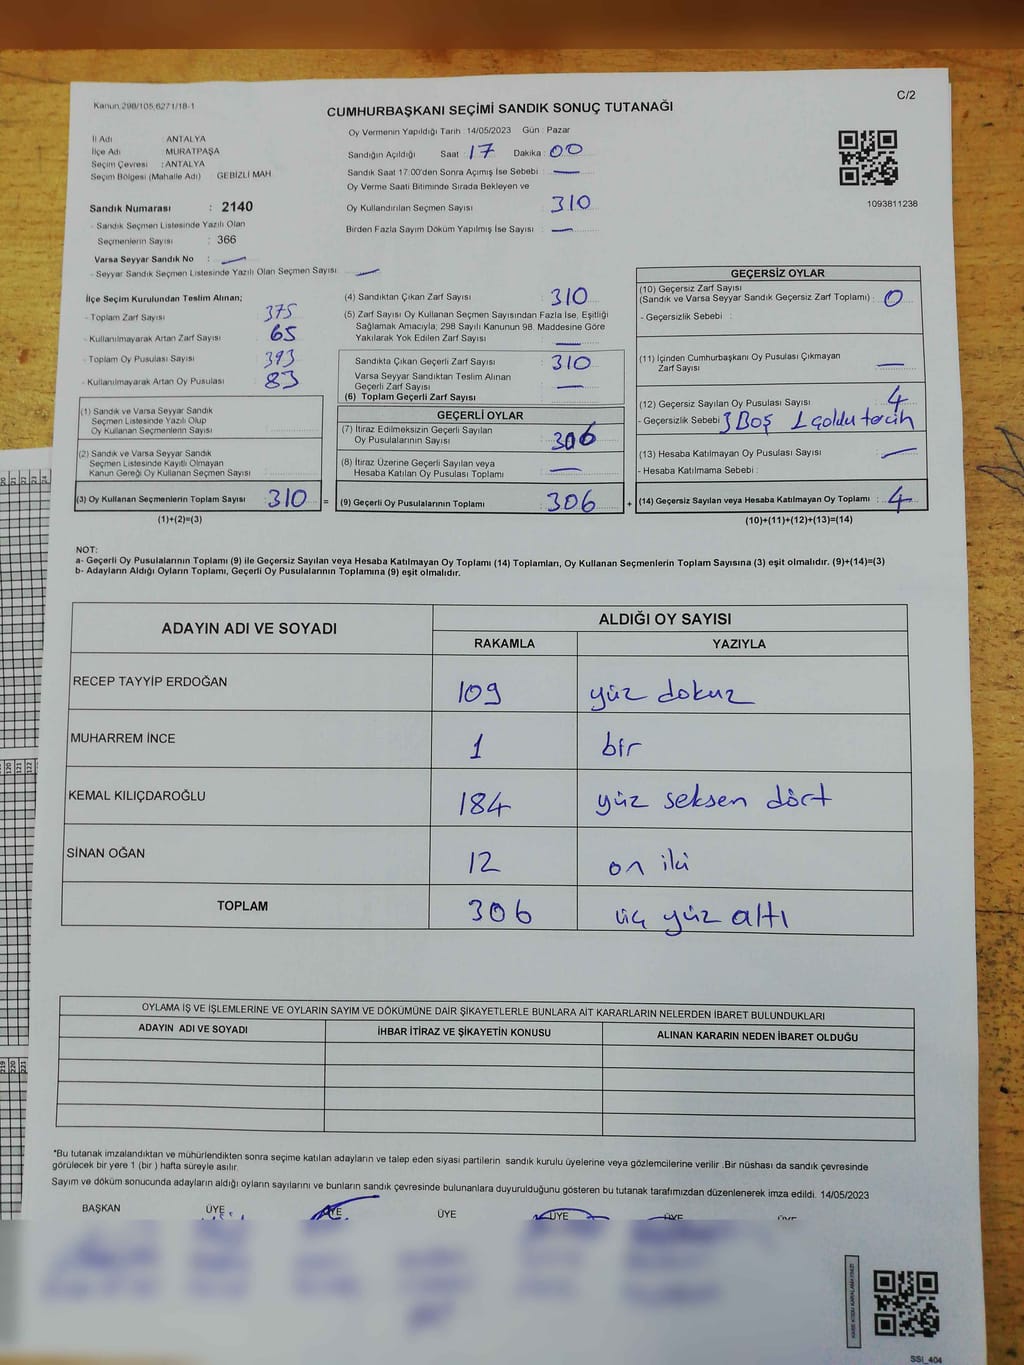 Kanun.298/105,6271/18-1
C/2
CUMHURBAŞKANI SEÇİMİ SANDIK SONUÇ TUTANAĞI
İl Adı : ANTALYA
İlçe Adı : MURATPAŞA
Seçim Çevresi : ANTALYA
Seçim Bölgesi (Mahalle Adı) GEBİZLİ MAH
Sandık Numarası : 2140
- Sandık Seçmen Listesinde Yazılı Olan
Seçmenlerin Sayısı : 366
Varsa Seyyar Sandık No : —
- Seyyar Sandık Seçmen Listesinde Yazılı Olan Seçmen Sayısı —
Oy Vermenin Yapıldığı Tarih : 14/05/2023 Gün : Pazar
Sandığın Açıldığı Saat : 17 Dakika : 00
Sandık Saat 17.00'den Sonra Açımış İse Sebebi : —
Oy Verme Saati Bitiminde Sırada Bekleyen ve
Oy Kullandırılan Seçmen Sayısı 310
Birden Fazla Sayım Döküm Yapılmış İse Sayısı : —
1093811238
İlçe Seçim Kurulundan Teslim Alınan;
- Toplam Zarf Sayısı : 375
- Kullanılmayarak Artan Zarf Sayısı : 65
- Toplam Oy Pusulası Sayısı : 393
- Kullanılmayarak Artan Oy Pusulası : 83
(1) Sandık ve Varsa Seyyar Sandık
Seçmen Listesinde Yazılı Olup
Oy Kullanan Seçmenlerin Sayısı
(2) Sandık ve Varsa Seyyar Sandık
Seçmen Listesinde Kayıtlı Olmayan
Kanun Gereği Oy Kullanan Seçmen Sayısı
(3) Oy Kullanan Seçmenlerin Toplam Sayısı : 310 =
(1)+(2)=(3)
(4) Sandıktan Çıkan Zarf Sayısı : 310
(5) Zarf Sayısı Oy Kullanan Seçmen Sayısından Fazla İse, Eşitliği
Sağlamak Amacıyla; 298 Sayılı Kanunun 98. Maddesine Göre
Yakılarak Yok Edilen Zarf Sayısı : —
Sandıkta Çıkan Geçerli Zarf Sayısı : 310
Varsa Seyyar Sandıktan Teslim Alınan
Geçerli Zarf Sayısı : —
(6) Toplam Geçerli Zarf Sayısı :
GEÇERLİ OYLAR
(7) İtiraz Edilmeksizin Geçerli Sayılan
Oy Pusulalarının Sayısı : 306
(8) İtiraz Üzerine Geçerli Sayılan veya
Hesaba Katılan Oy Pusulası Toplamı : —
(9) Geçerli Oy Pusulalarının Toplamı : 306 +
GEÇERSİZ OYLAR
(10) Geçersiz Zarf Sayısı
(Sandık ve Varsa Seyyar Sandık Geçersiz Zarf Toplamı) : 0
- Geçersizlik Sebebi :
(11) İçinden Cumhurbaşkanı Oy Pusulası Çıkmayan
Zarf Sayısı : —
(12) Geçersiz Sayılan Oy Pusulası Sayısı : 4
- Geçersizlik Sebebi : 3 Boş 1 çoldu tercih
(13) Hesaba Katılmayan Oy Pusulası Sayısı : —
- Hesaba Katılmama Sebebi :
(14) Geçersiz Sayılan veya Hesaba Katılmayan Oy Toplamı : 4
(10)+(11)+(12)+(13)=(14)
NOT:
a- Geçerli Oy Pusulalarının Toplamı (9) ile Geçersiz Sayılan veya Hesaba Katılmayan Oy Toplamı (14) Toplamları, Oy Kullanan Seçmenlerin Toplam Sayısına (3) eşit olmalıdır. (9)+(14)=(3)
b- Adayların Aldığı Oyların Toplamı, Geçerli Oy Pusulalarının Toplamına (9) eşit olmalıdır.
ADAYIN ADI VE SOYADI ALDIĞI OY SAYISI
RAKAMLA YAZIYLA
RECEP TAYYİP ERDOĞAN 109 yüz dokuz
MUHARREM İNCE 1 bir
KEMAL KILIÇDAROĞLU 184 yüz seksen dört
SİNAN OĞAN 12 on iki
TOPLAM 306 üç yüz altı
OYLAMA İŞ VE İŞLEMLERİNE VE OYLARIN SAYIM VE DÖKÜMÜNE DAİR ŞİKAYETLERLE BUNLARA AİT KARARLARIN NELERDEN İBARET BULUNDUKLARI
ADAYIN ADI VE SOYADI İHBAR İTİRAZ VE ŞİKAYETİN KONUSU ALINAN KARARIN NEDEN İBARET OLDUĞU
*Bu tutanak imzalandıktan ve mühürlendikten sonra seçime katılan adayların ve talep eden siyasi partilerin sandık kurulu üyelerine veya gözlemcilerine verilir .Bir nüshası da sandık çevresinde
görülecek bir yere 1 (bir ) hafta süreyle asılır.
Sayım ve döküm sonucunda adayların aldığı oyların sayılarını ve bunların sandık çevresinde bulunanlara duyurulduğunu gösteren bu tutanak tarafımızdan düzenlenerek imza edildi. 14/05/2023
BAŞKAN ÜYE ÜYE ÜYE ÜYE ÜYE ÜYE
SSI_404